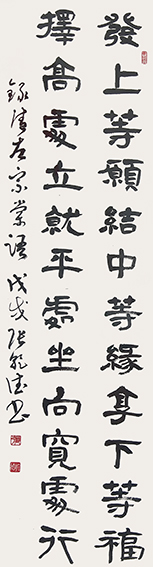 發上等願結中等緣享下等福
擇高處立就平處坐向寬處行
錄清左宗棠語 戊戌張乾德書